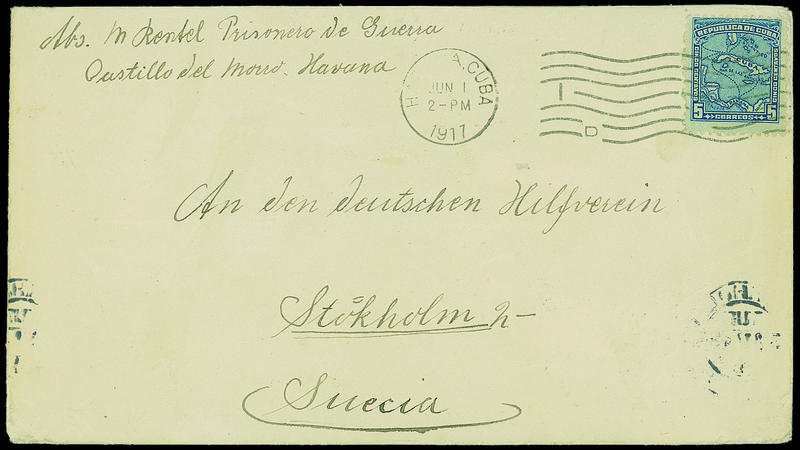 Abs. M Rentel Prisonero de Guerra
Castillo del Morro. Havana
A, CUBA
JUN 1
2-PM
1917
REPUBLICA DE CUBA
CUBA
5 CORREOS 5
An den deutschen Hilfverein
Stökholm 2-
Suecia